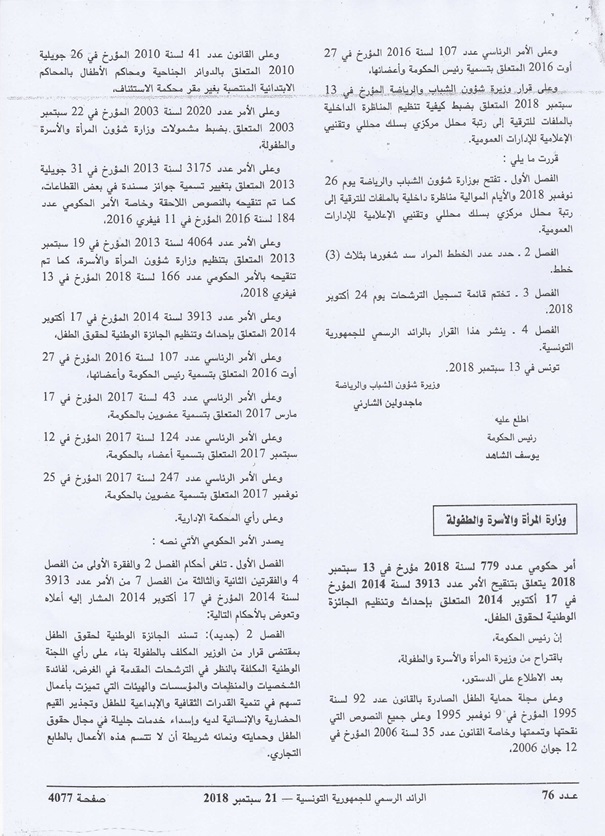 وعلى الأمر الرئاسي عدد 107 لسنة 2016 المؤرخ في 27
أوت 2016 المتعلق بتسمية رئيس الحكومة وأعضائها،
وعلى قرار وزيرة شؤون الشباب والرياضة المؤرخ في 13
سبتمبر 2018 المتعلق بضبط كيفية تنظيم المناظرة الداخلية
بالملفات للترقية إلى رتبة محلل مركزي بسلك محللي وتقنيي
الإعلامية للإدارات العمومية.
قررت ما يلي :
الفصل الأول ـ تفتح بوزارة شؤون الشباب والرياضة يوم 26
نوفمبر 2018 والأيام الموالية مناظرة داخلية بالملفات للترقية إلى
رتبة محلل مركزي بسلك محللي وتقنيي الإعلامية للإدارات
العمومية.
الفصل 2 ـ حدد عدد الخطط المراد سد شغورها بثلاث (3)
خطط.
الفصل 3 ـ تختم قائمة تسجيل الترشحات يوم 24 أكتوبر
2018.
الفصل 4 ـ ينشر هذا القرار بالرائد الرسمي للجمهورية
التونسية.
تونس في 13 سبتمبر 2018.
وزيرة شؤون الشباب والرياضة
ماجدولين الشارني
اطلع عليه
رئيس الحكومة
يوسف الشاهد
وزارة المرأة والأسرة والطفولة
أمر حكومي عدد 779 لسنة 2018 مؤرخ في 13 سبتمبر
2018 يتعلق بتنقيح الأمر عدد 3913 لسنة 2014 المؤرخ
في 17 أكتوبر 2014 المتعلق بإحداث وتنظيم الجائزة
الوطنية لحقوق الطفل.
إن رئيس الحكومة،
باقتراح من وزيرة المرأة والأسرة والطفولة،
بعد الاطلاع على الدستور،
وعلى مجلة حماية الطفل الصادرة بالقانون عدد 92 لسنة
1995 المؤرخ في 9 نوفمبر 1995 وعلى جميع النصوص التي
نقحتها وتممتها وخاصة القانون عدد 35 لسنة 2006 المؤرخ في
12 جوان 2006،
وعلى القانون عدد 41 لسنة 2010 المؤرخ في 26 جويلية
2010 المتعلق بالدوائر الجناحية ومحاكم الأطفال بالمحاكم
الابتدائية المنتصبة بغير مقر محكمة الاستئناف،
وعلى الأمر عدد 2020 لسنة 2003 المؤرخ في 22 سبتمبر
2003 المتعلق بضبط مشمولات وزارة شؤون المرأة والأسرة
والطفولة،
وعلى الأمر عدد 3175 لسنة 2013 المؤرخ في 31 جويلية
2013 المتعلق بتغيير تسمية جوائز مسندة في بعض القطاعات،
كما تم تنقيحه بالنصوص اللاحقة وخاصة الأمر الحكومي عدد
184 لسنة 2016 المؤرخ في 11 فيفري 2016،
وعلى الأمر عدد 4064 لسنة 2013 المؤرخ في 19 سبتمبر
2013 المتعلق بتنظيم وزارة شؤون المرأة والأسرة، كما تم
تنقيحه بالأمر الحكومي عدد 166 لسنة 2018 المؤرخ في 13
فيفري 2018،
وعلى الأمر عدد 3913 لسنة 2014 المؤرخ في 17 أكتوبر
2014 المتعلق بإحداث وتنظيم الجائزة الوطنية لحقوق الطفل،
وعلى الأمر الرئاسي عدد 107 لسنة 2016 المؤرخ في 27
أوت 2016 المتعلق بتسمية رئيس الحكومة وأعضائها،
وعلى الأمر الرئاسي عدد 43 لسنة 2017 المؤرخ في 17
مارس 2017 المتعلق بتسمية عضوين بالحكومة،
وعلى الأمر الرئاسي عدد 124 لسنة 2017 المؤرخ في 12
سبتمبر 2017 المتعلق بتسمية أعضاء بالحكومة،
وعلى الأمر الرئاسي عدد 247 لسنة 2017 المؤرخ في 25
نوفمبر 2017 المتعلق بتسمية عضوين بالحكومة،
وعلى رأي المحكمة الإدارية.
يصدر الأمر الحكومي الآتي نصه :
الفصل الأول ـ تلغى أحكام الفصل 2 والفقرة الأولى من الفصل
4 والفقرتين الثانية والثالثة من الفصل 7 من الأمر عدد 3913
لسنة 2014 المؤرخ في 17 أكتوبر 2014 المشار إليه أعلاه
وتعوض بالأحكام التالية:
الفصل 2 (جديد): تسند الجائزة الوطنية لحقوق الطفل
بمقتضى قرار من الوزير المكلف بالطفولة بناء على رأي اللجنة
الوطنية المكلفة بالنظر في الترشحات المقدمة في الغرض، لفائدة
الشخصيات والمنظمات والمؤسسات والهيئات التي تميزت بأعمال
تسهم في تنمية القدرات الثقافية والإبداعية للطفل وتجذير القيم
الحضارية والإنسانية لديه وإسداء خدمات جليلة في مجال حقوق
الطفل وحمايته ونمائه شريطة أن لا تتسم هذه الأعمال بالطابع
التجاري.
عـدد 76
الرائد الرسمي للجمهورية التونسية — 21 سبتمبر 2018
صفحـة 4077